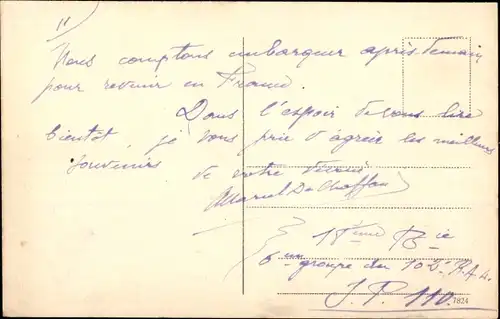 11
Nous comptons embarquer après demain
pour revenir en France.
Dans l'espoir de vous lire
bientôt, je vous prie d'agréer les meilleurs
souvenirs de votre dévoué
Marcel
18ème Bie
6ème groupe du 102e R.A.L.
S.P. 110.
7824